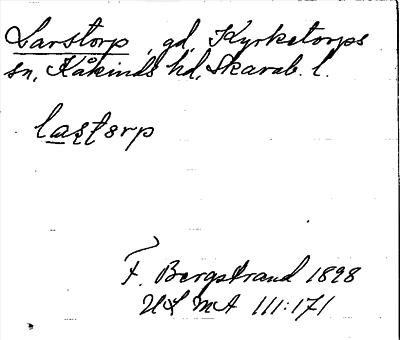 Larstorp, gd, Kyrketorps
sn, Kåkinds hd, Skarab. l.
lastorp
F. Bergstrand 1898
ULMA 111:171